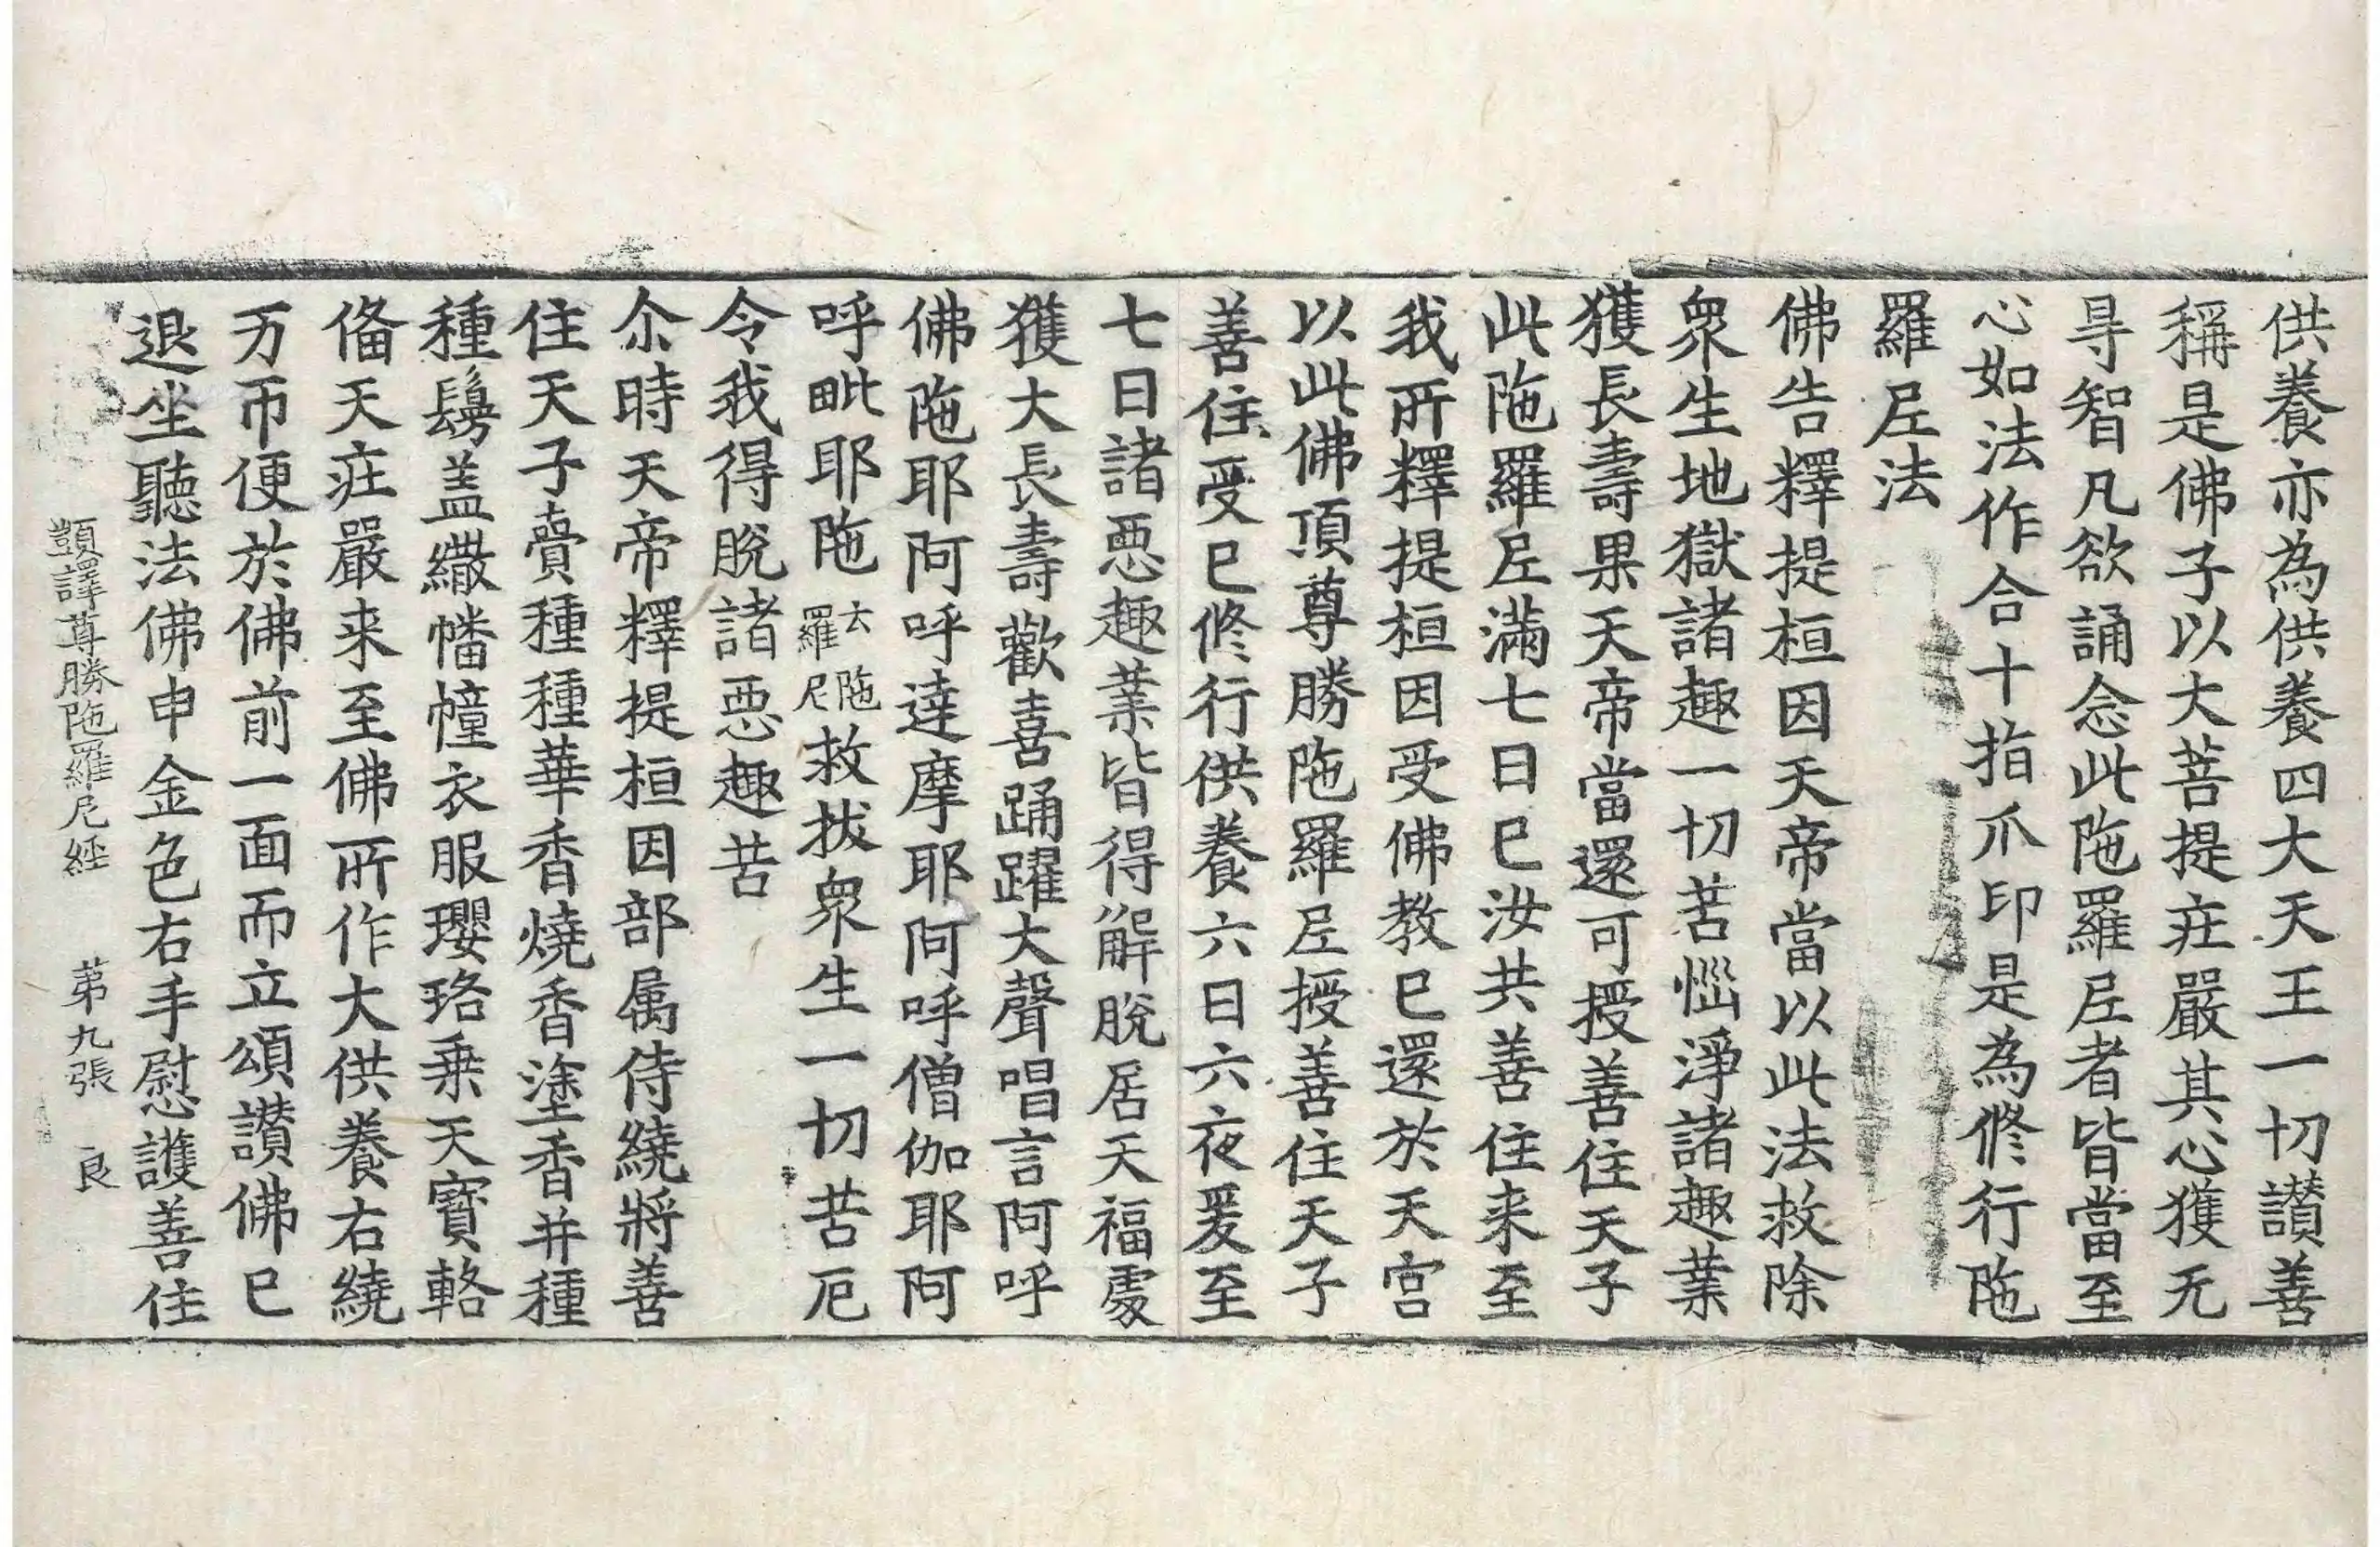 供養亦為供養四大天王一切讃善
稱是佛子以大菩提疘嚴其心獲无
㝵智凡欲誦念此陁羅𡰱者皆當至
心如法作合十指爪印是為俢行陁
羅𡰱法
佛告釋提桓因天帝當以此法救除
衆生地獄諸趣一切苦惱淨諸趣業
獲長壽果天帝當還可授善住天子
此陁羅𡰱滿七日已汝共善住来至
我所釋提桓因受佛教已還於天宮
以此佛頂尊勝陁羅𡰱授善住天子
善住受已俢行供養六日六夜爰至
七日諸悪趣業皆得解脫居天福處
獲大長壽歡喜踊躍大聲唱言阿呼
佛陁耶阿呼達摩耶阿呼僧伽耶阿
呼毗耶陁去陁羅尼救拔衆生一切苦厄
令我得脫諸悪趣苦
尒時天帝釋提桓因部属侍繞將善
住天子賷種種華香燒香塗香并種
種鬘盖繖幡幢衣服瓔珞乗天寶輅
俻天疘嚴来至佛所作大供養右繞
万帀便於佛前一面而立頌讃佛已
退坐聽法佛申金色右手慰護善住
顗譯尊勝陁羅尼經　苐九張　良